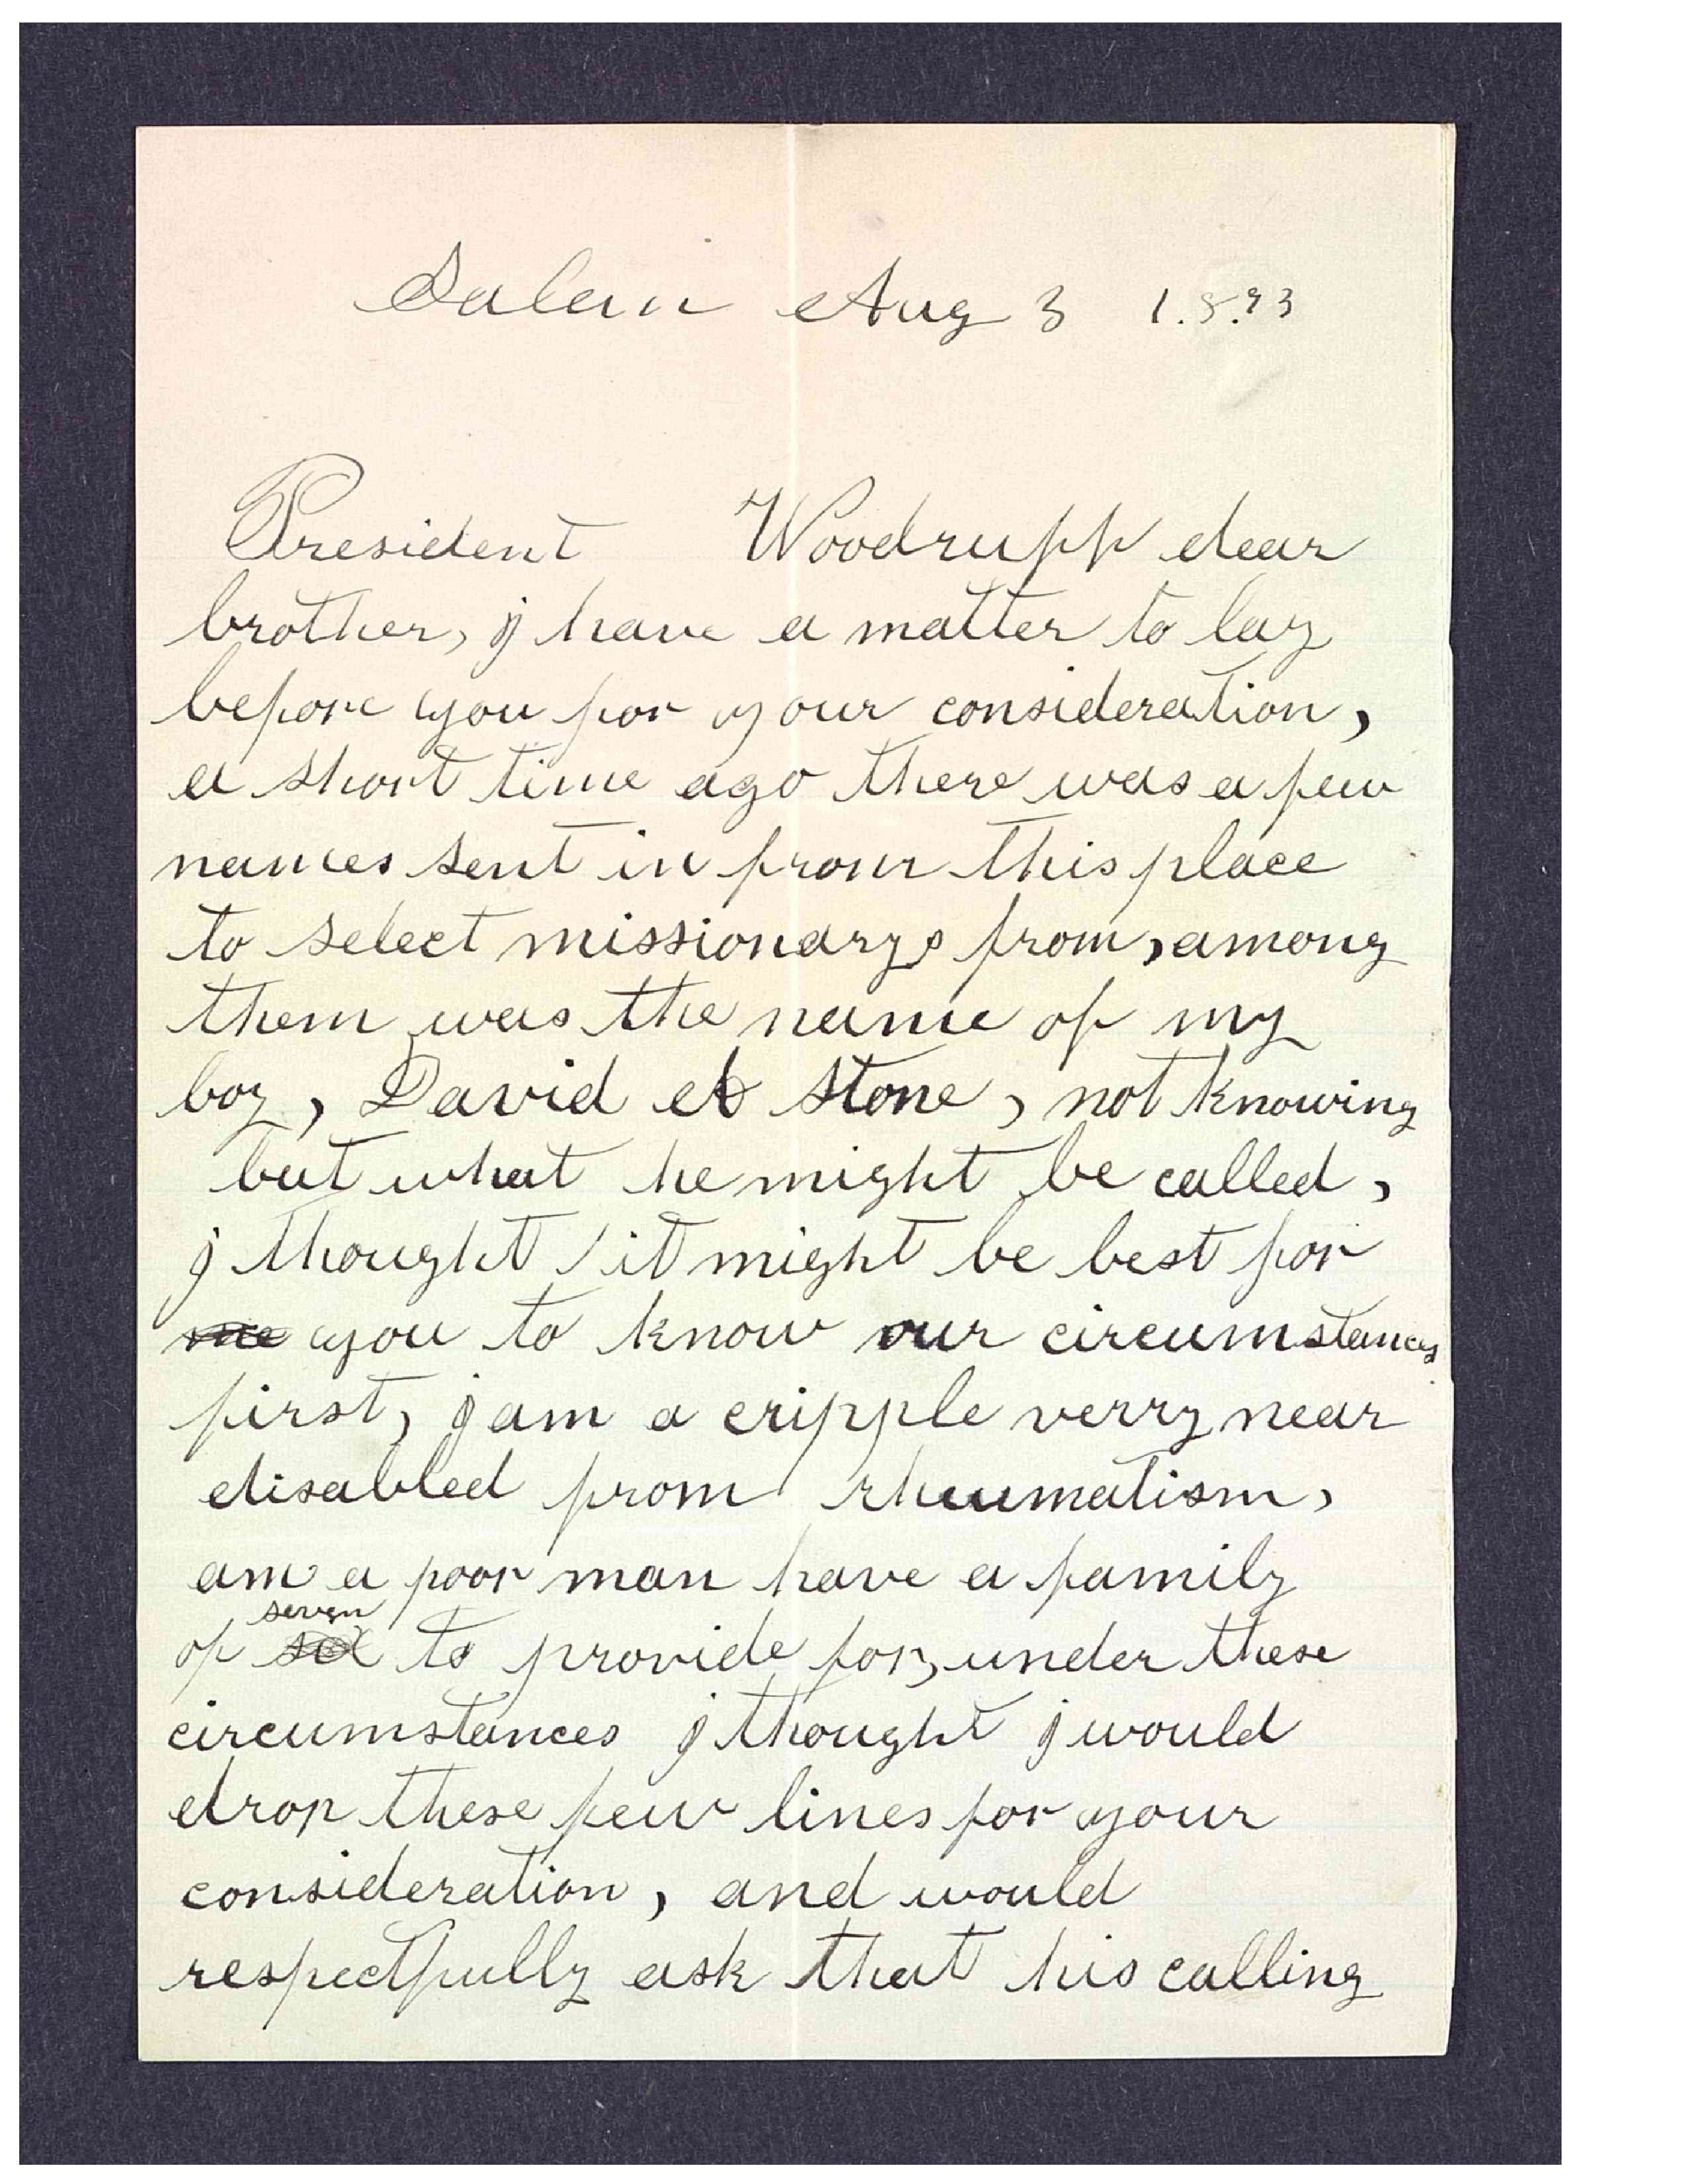 Salem Aug 3 1.8.93
President Woodruff dear
brother, j have a matter to lay
before you for your consideration,
a short time ago there was a few
names sent in from this place
to select missionarys from, among
them was the name of my
boy, David A Stone, not knowing
but what he might be called,
j thought it might be best for
me you to know our circumstances
first, j am a cripple verry near
disabled from rheumatism,
am a poor man have a family
seven
of six to provide for, under these
circumstances j thought j would
drop these few lines for your
consideration, and would
respectfully ask that his calling